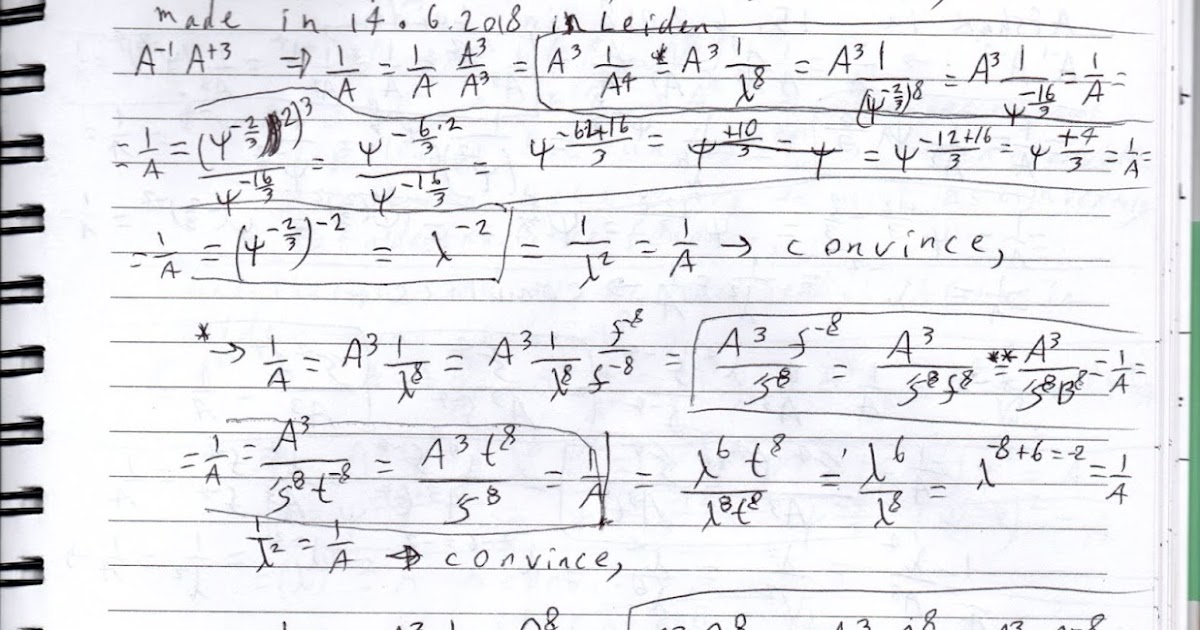 made in 14.6.2018 in Leiden
A⁻¹ A⁺³ ⇒ 1/A = 1/A A³/A³ = A³ 1/A⁴ *= A³ 1/λ⁸ = A³ 1/(ψ^(-2/3))⁸ = A³ 1/ψ^(-16/3) = 1/A =
= 1/A = (ψ^(-2/3)2)³/ψ^(-16/3) = ψ^(-6/3·2)/ψ^(-16/3) = ψ^(-62+16/3) = ψ^(+10/3) = ψ = ψ^(-12+16/3) = ψ^(+4/3) = 1/A =
= 1/A = (ψ^(-2/3))⁻² = λ⁻² = 1/λ² = 1/A → convince,
* → 1/A = A³ 1/λ⁸ = A³ 1/λ⁸ f⁻⁸/f⁻⁸ = A³ f⁻⁸/s⁸ = A³/s⁸f⁸ **= A³/s⁸B⁸ = 1/A =
= 1/A = A³/s⁸t⁻⁸ = A³t⁸/s⁸ = 1/A = λ⁶t⁸/λ⁸t⁸ = λ⁶/λ⁸ = λ^(-8+6=-2) = 1/A
1/λ² = 1/A → convince,